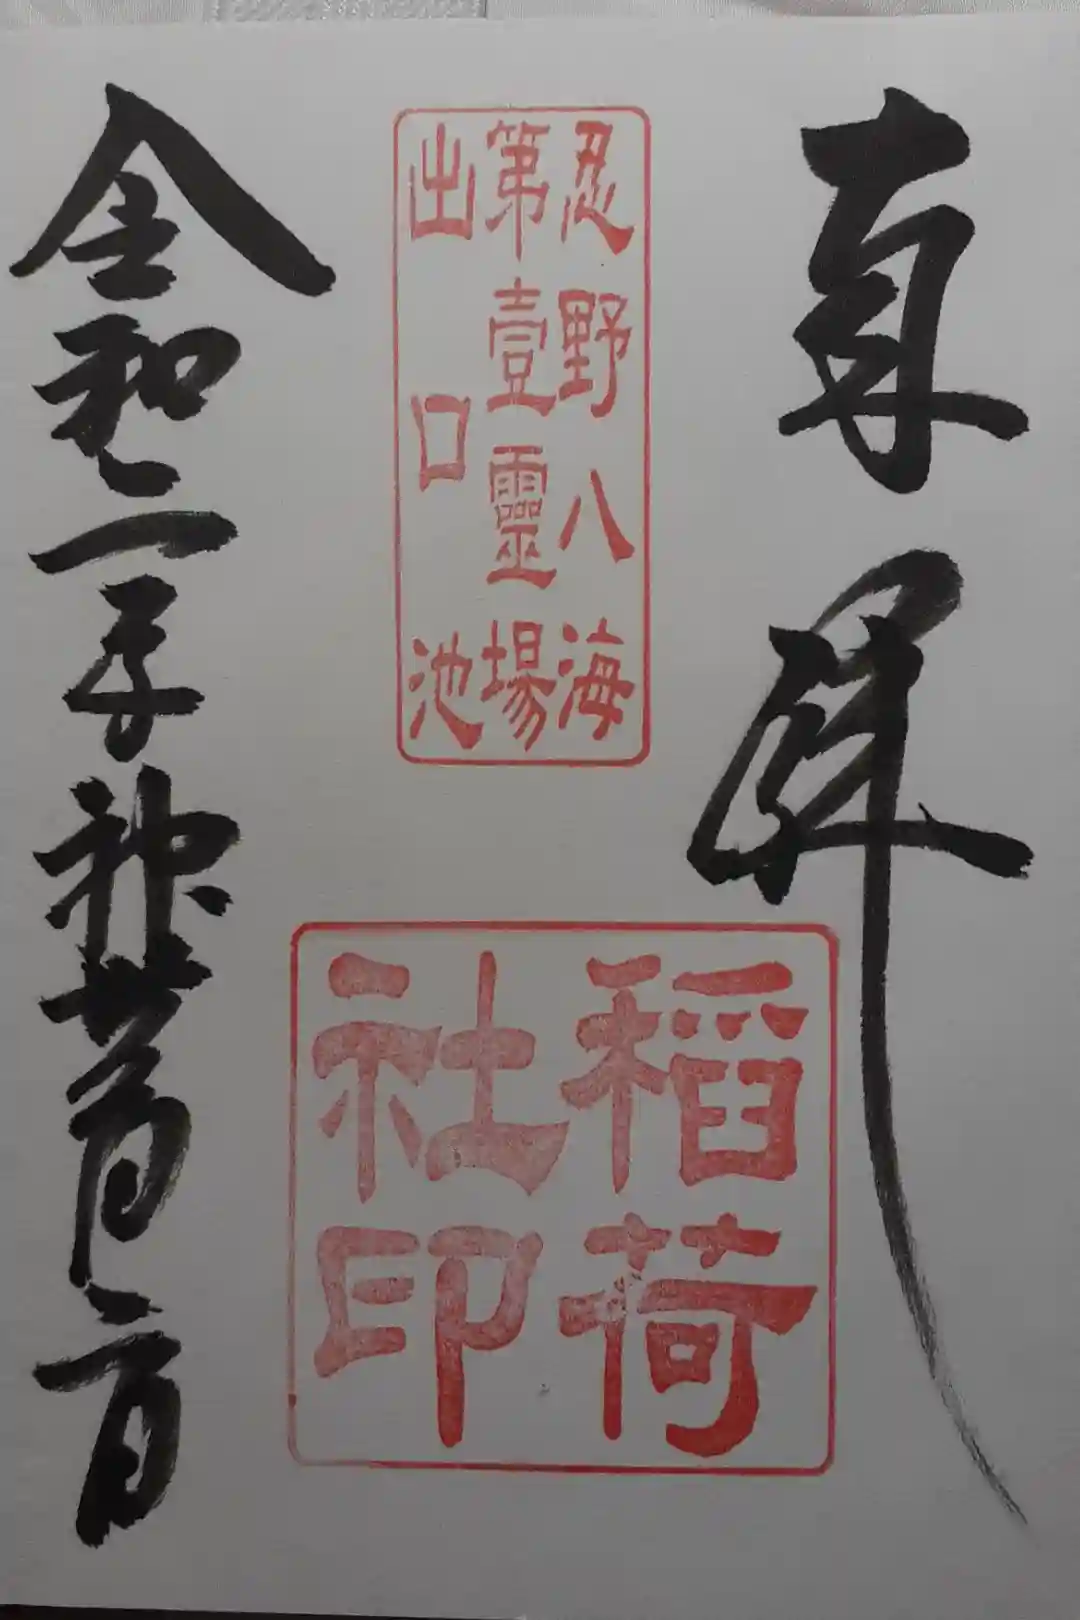 奉拝
忍野八海
第壹靈場
出口池
稲荷
社印
令和二年神無月二日